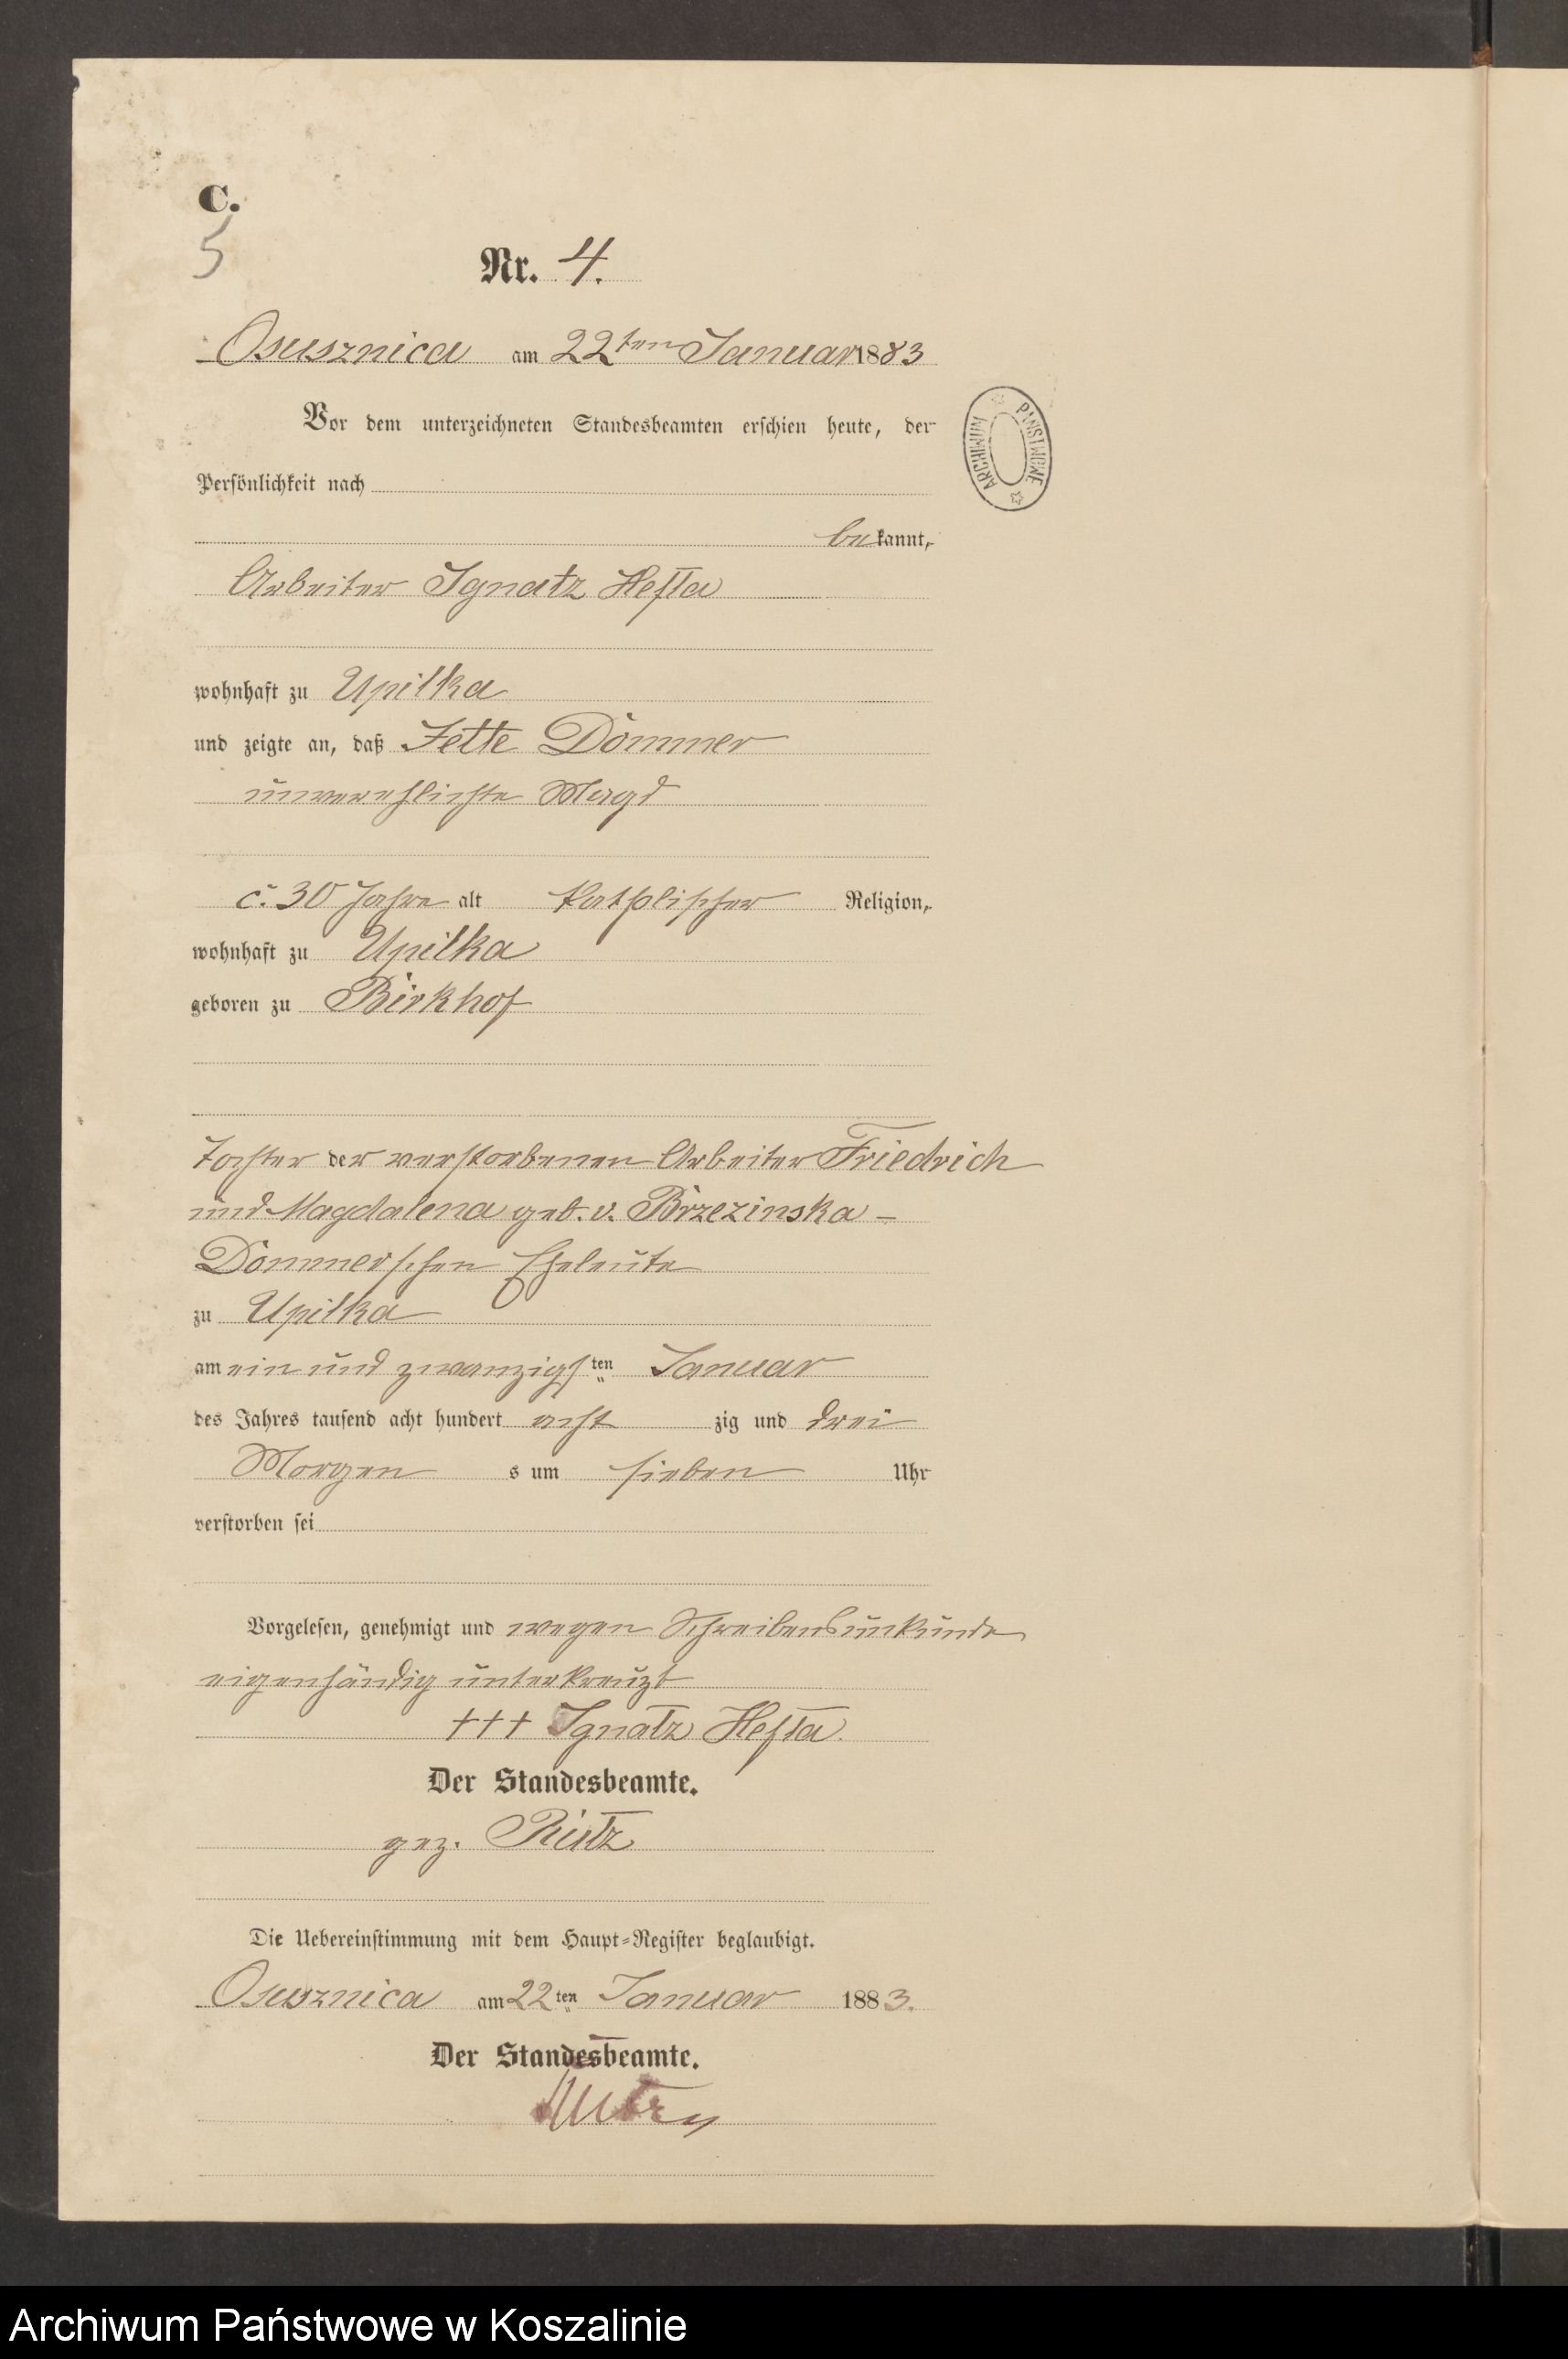 C.
5
Nr. 4.
Osusznica am 22ten Januar 1883
Vor dem unterzeichneten Standesbeamten erschien heute, der
Persönlichkeit nach
bekannt,
Arbeiter Ignatz Hefta
wohnhaft zu Upilka
und zeigte an, daß Jette Dommer
unverehlichte Magd
c. 30 Jahre alt katholischer Religion,
wohnhaft zu Upilka
geboren zu Birkhof
Tochter der verstorbenen Arbeiter Friedrich
und Magdalena geb. v. Brzezinska -
Dommerschen Eheleute
zu Upilka
am ein und zwanzigsten Januar
des Jahres tausend acht hundert acht zig und drei
Morgen s um sieben Uhr
verstorben sei
Vorgelesen, genehmigt und wegen Schreibensunkunde
eigenhändig unterkreuzt
+++ Ignatz Hefta.
Der Standesbeamte.
gez.
Die Uebereinstimmung mit dem Haupt-Register beglaubigt.
Osusznica am 22ten Januar 1883.
Der Standesbeamte.
ARCHIWUM PAŃSTWOWE
Archiwum Państwowe w Koszalinie